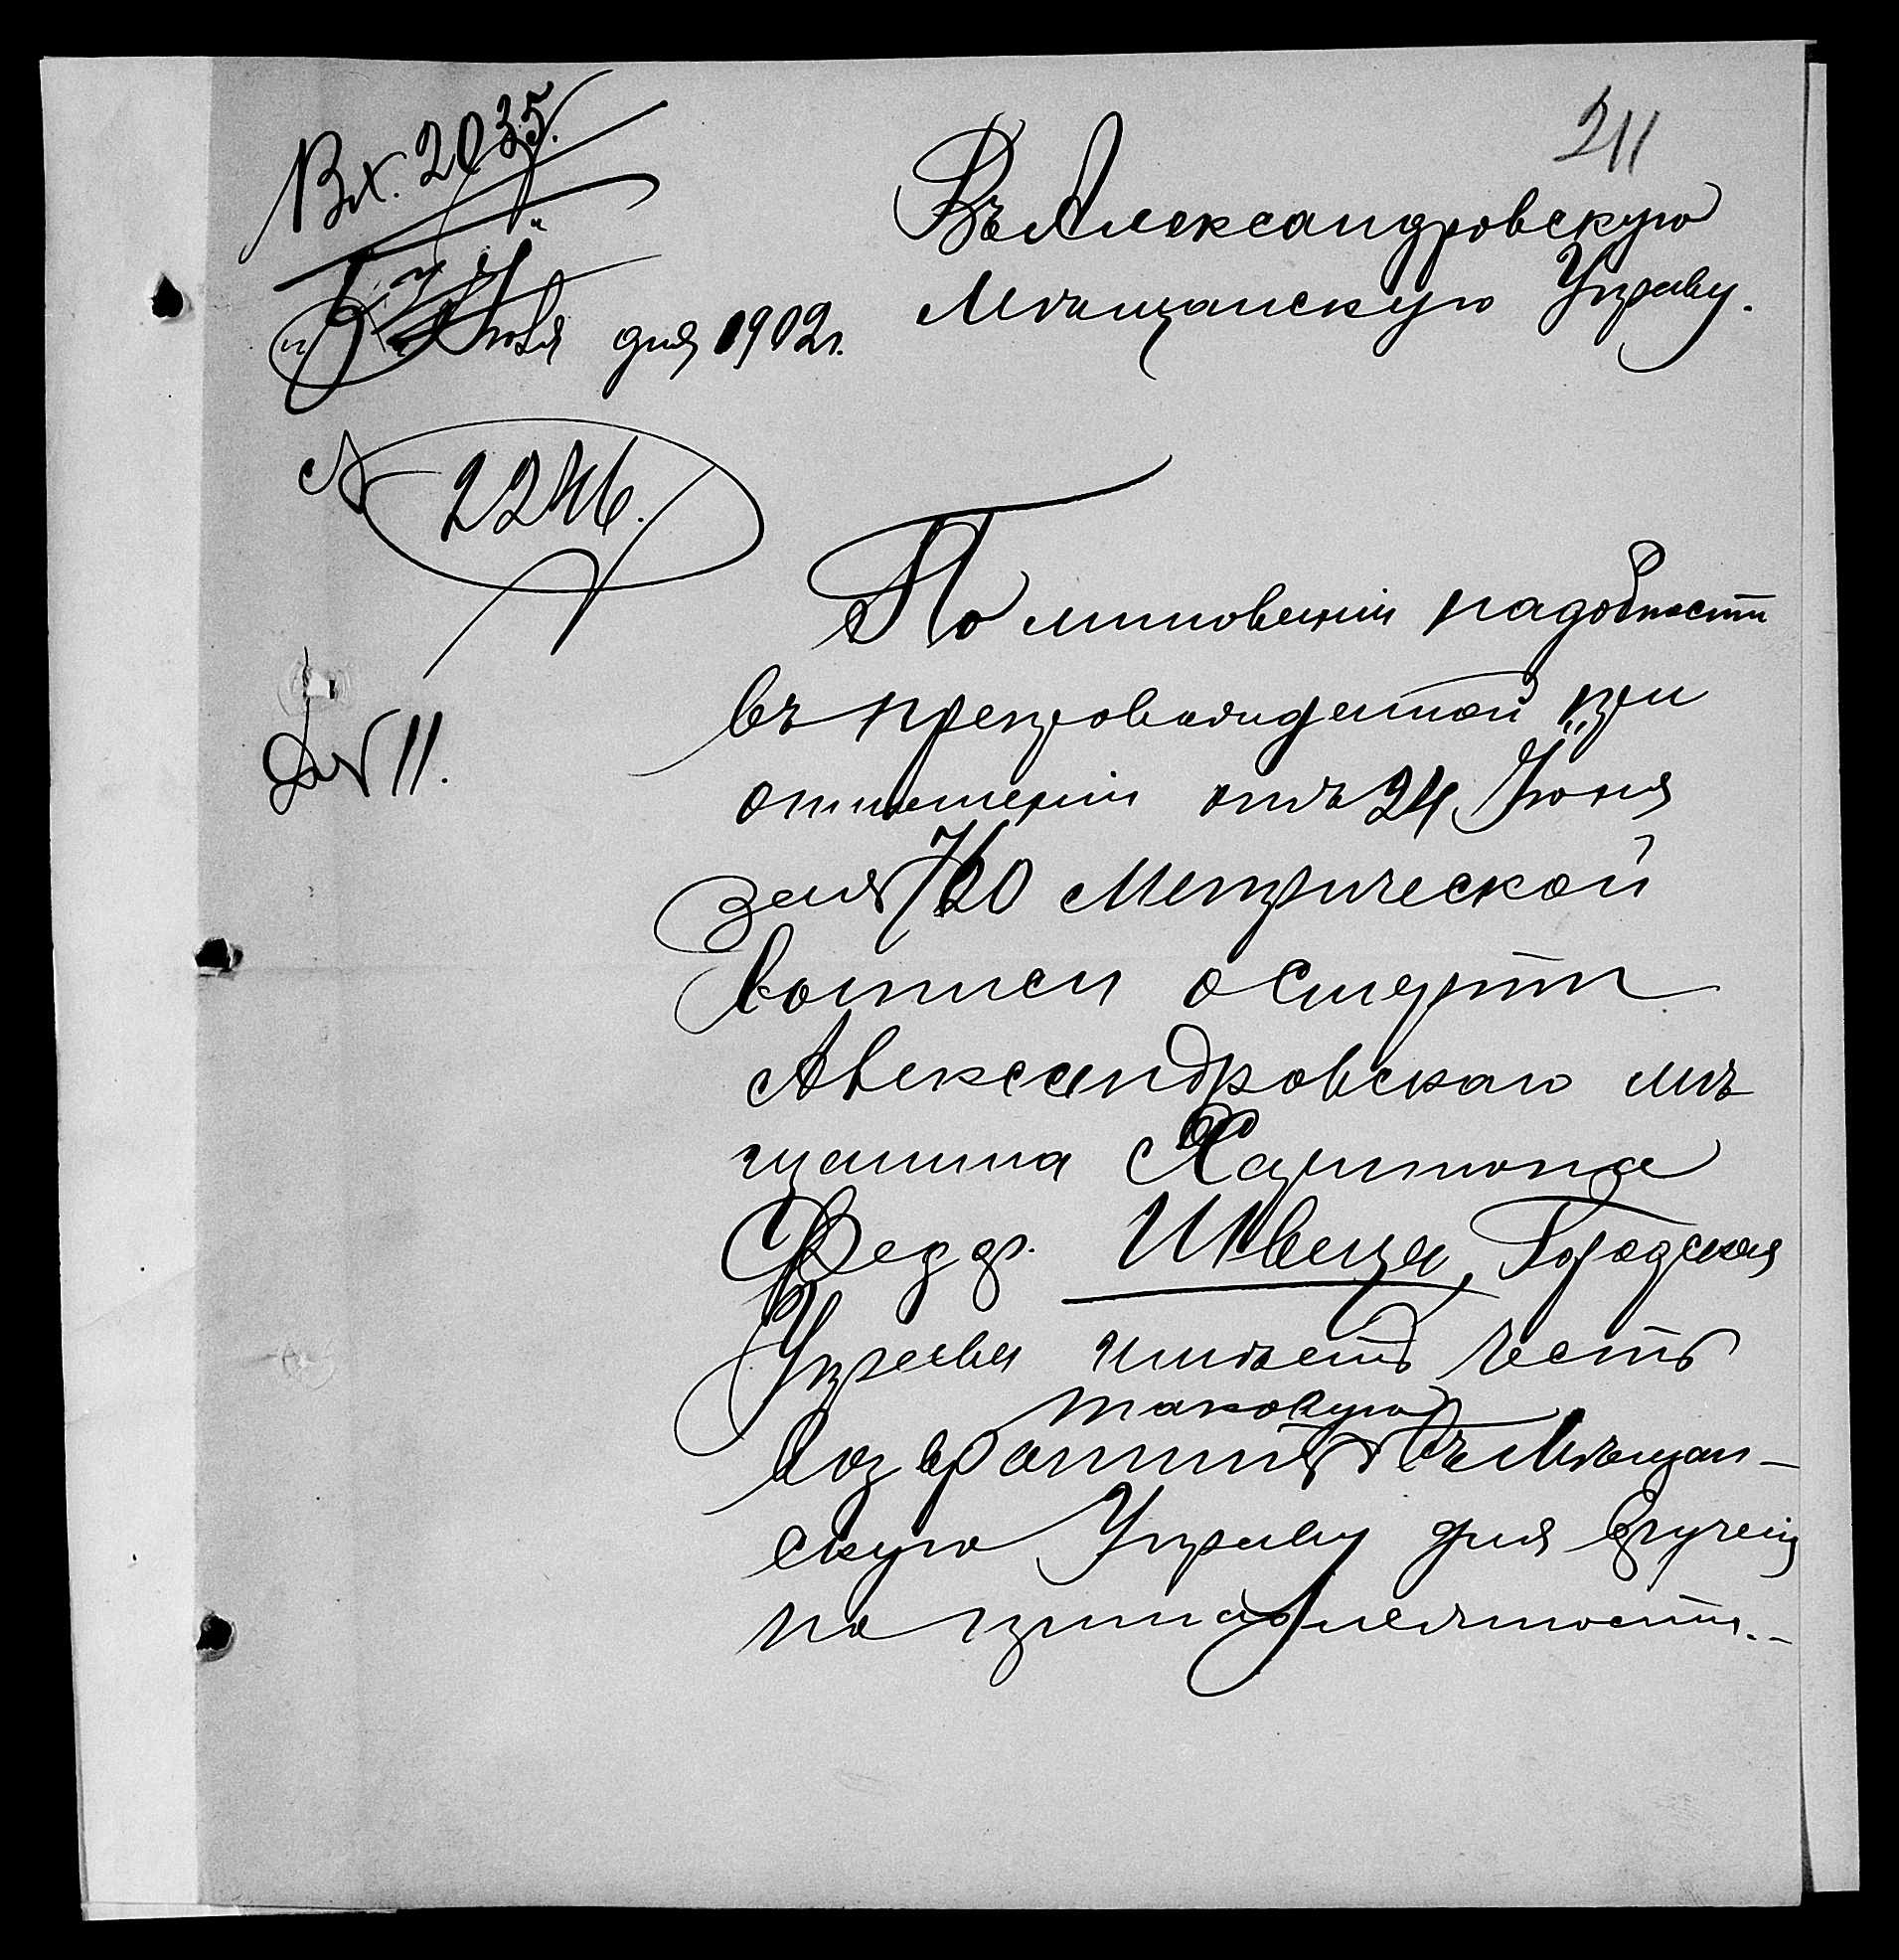 211
Вх. 2035.
Въ Александровскую
Мѣщанскую Управу.
Іюля дня 1902 г.
№ 2246.
По минованіи надобности
въ препровожденной при
отношеніи отъ 24 Іюня
за № 720 метрической
выписи о смерти
Александровскаго мѣ
щанина Харитона
Швеца, Городская
Управа имѣетъ честь
таковую
возвратить въ Мѣщан-
скую Управу для врученія
по принадлежности.-